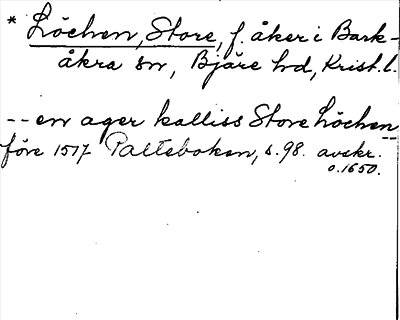 * Löchen, Store, f. åker i Bark-
åkra sn, Bjäre hd, Krist. l.
-- en ager kalliss Store Löchen --
före 1517 Palteboken, s. 98. avskr.
o. 1650.